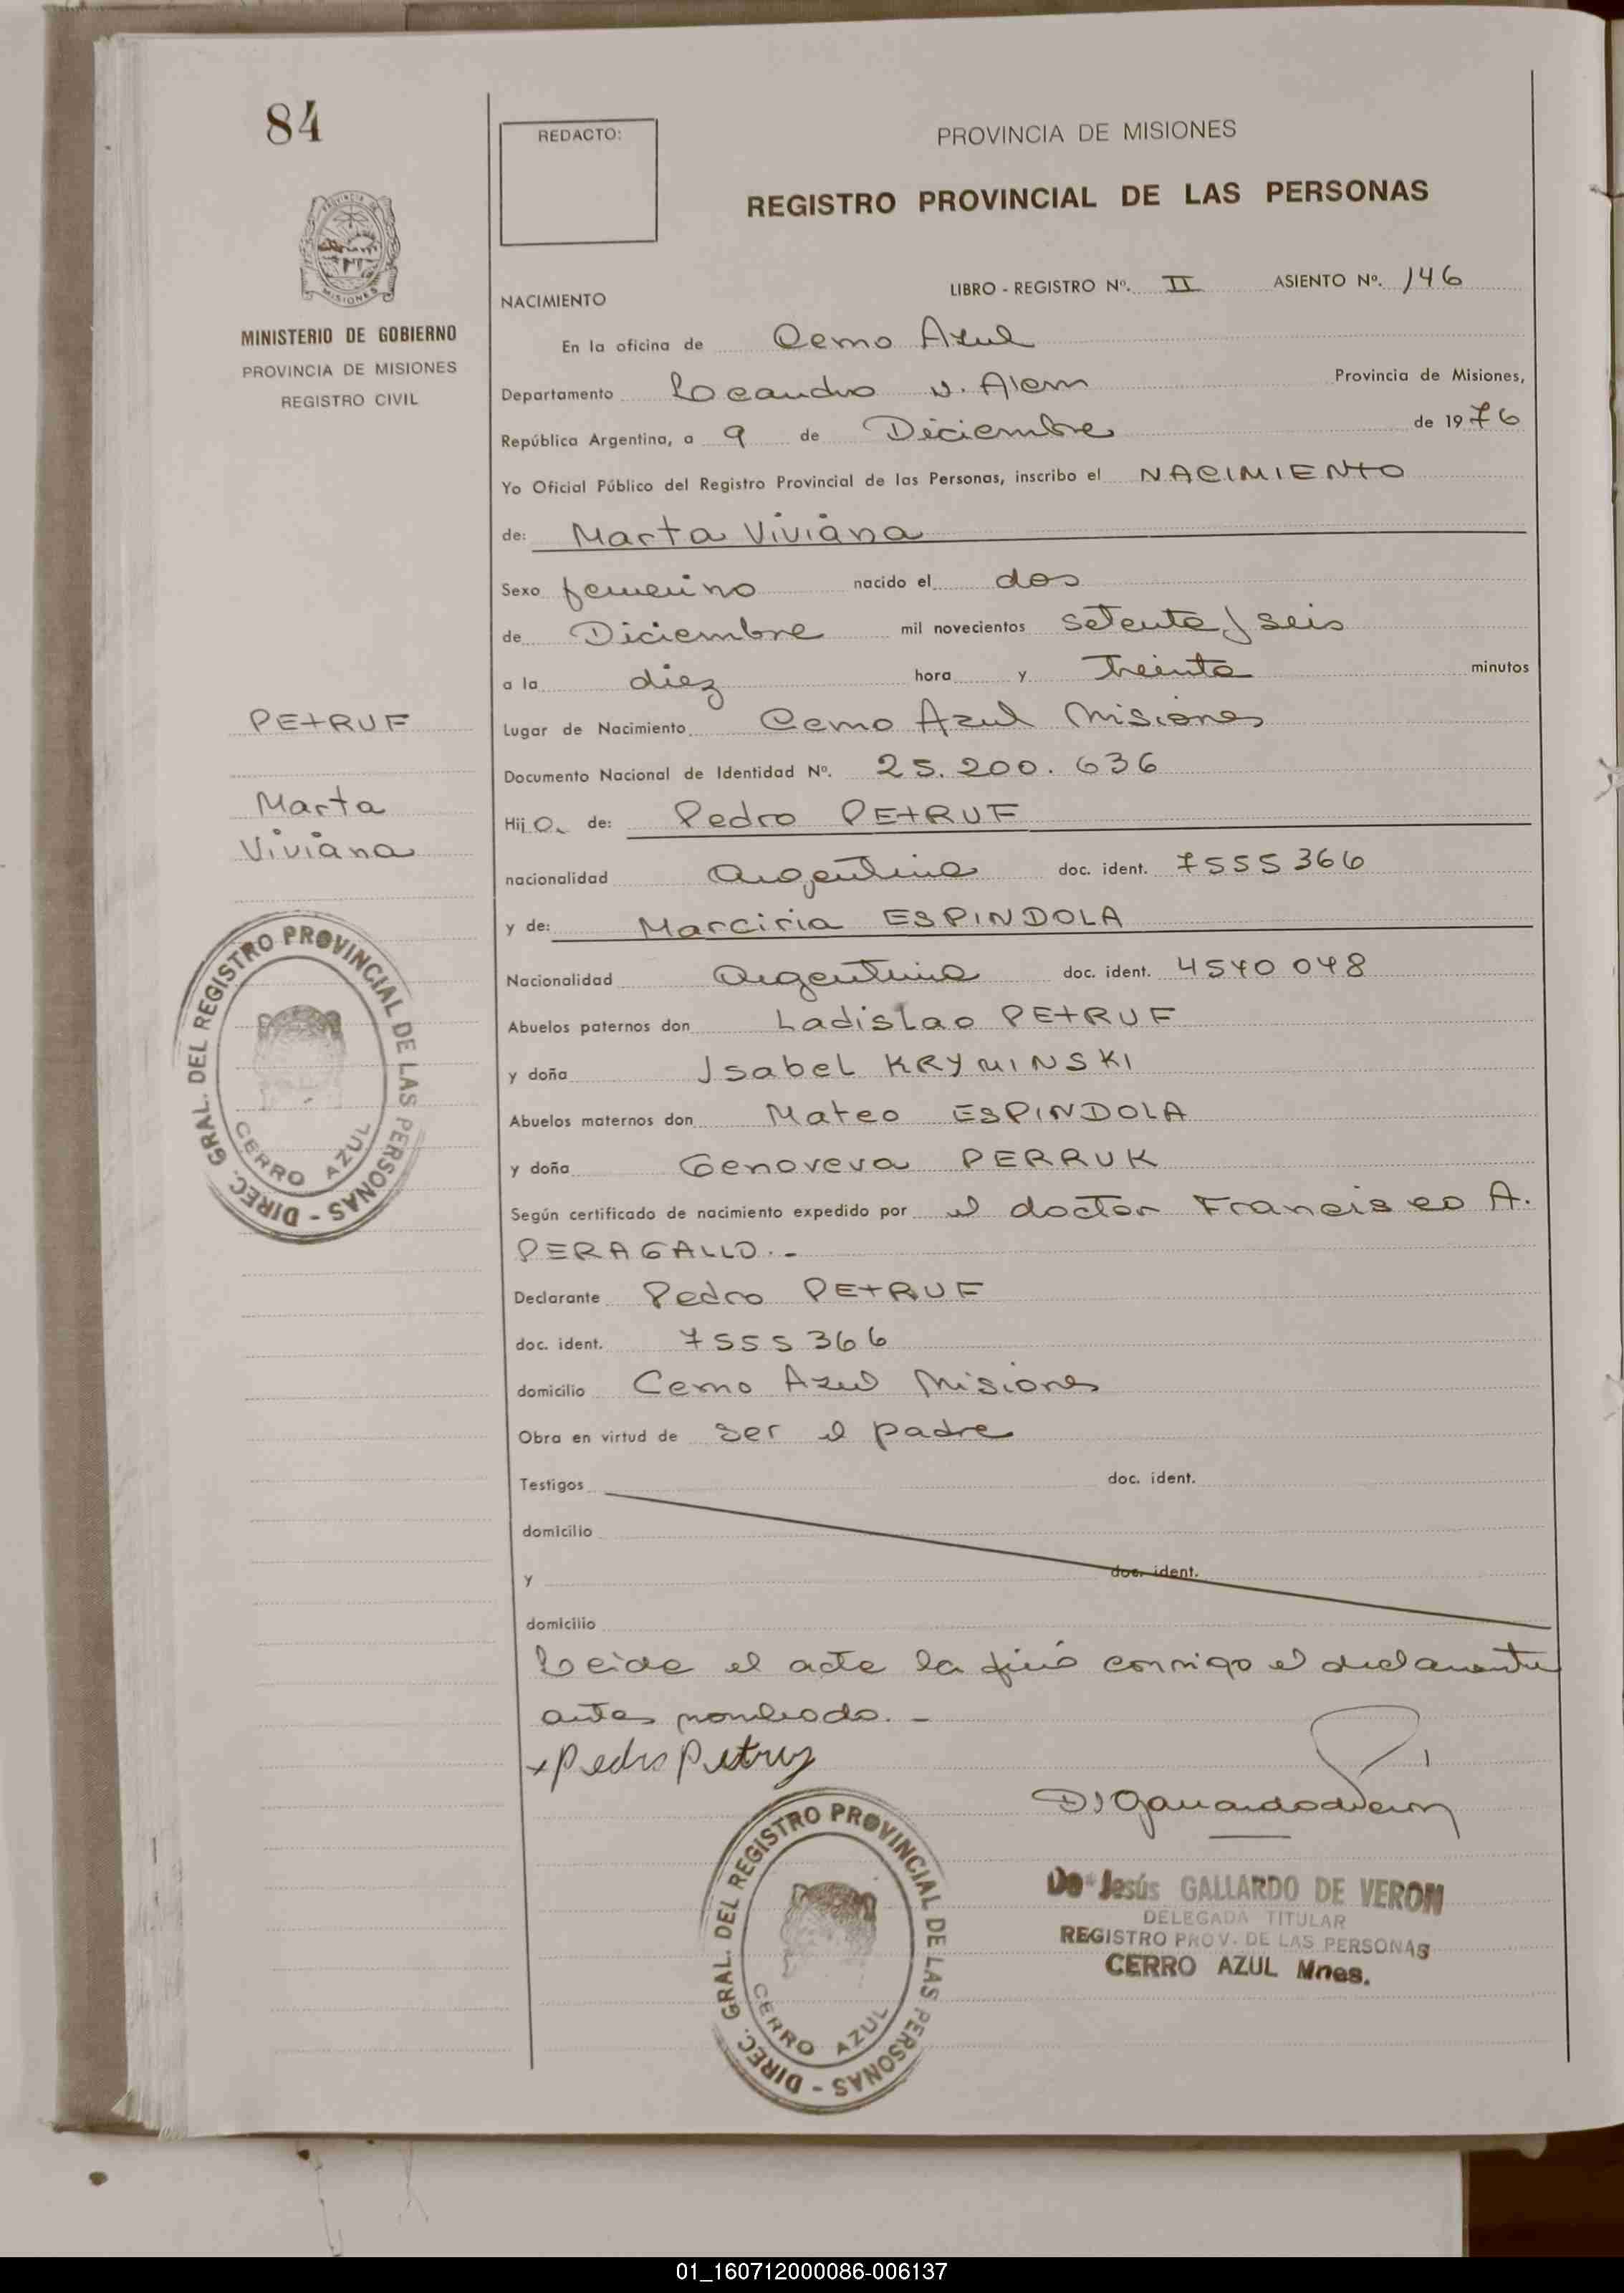 84
PROVINCIA DE MISIONES
MINISTERIO DE GOBIERNO
PROVINCIA DE MISIONES
REGISTRO CIVIL
REDACTO:
PROVINCIA DE MISIONES
REGISTRO PROVINCIAL DE LAS PERSONAS
NACIMIENTO LIBRO - REGISTRO Nº. II ASIENTO Nº. 146
En la oficina de Cerro Azul
Departamento Leandro N. Alem Provincia de Misiones,
República Argentina, a 9 de Diciembre de 1976
Yo Oficial Público del Registro Provincial de las Personas, inscribo el NACIMIENTO
de: Marta Viviana
Sexo femenino nacido el dos
de Diciembre mil novecientos setenta y seis
a la diez hora y treinta minutos
Lugar de Nacimiento Cerro Azul Misiones
Documento Nacional de Identidad Nº. 25.200.636
Hija de: Pedro PETRUF
nacionalidad argentina doc. ident. 7555366
y de: Marciria ESPINDOLA
Nacionalidad argentina doc. ident. 4540048
Abuelos paternos don Ladislao PETRUF
y doña Isabel KRYMINSKI
Abuelos maternos don Mateo ESPINDOLA
y doña Genoveva PERRUK
Según certificado de nacimiento expedido por el doctor Francisco A.
PERAGALLO.-
Declarante Pedro PETRUF
doc. ident. 7555366
domicilio Cerro Azul Misiones
Obra en virtud de ser el padre
Testigos doc. ident.
domicilio
y doc. ident.
domicilio
Leida el acta la firmó conmigo el declarante
antes nombrado.-
x Pedro Petruf
PETRUF
Marta
Viviana
DIREC. GRAL. DEL REGISTRO PROVINCIAL DE LAS PERSONAS -
CERRO AZUL
DIREC. GRAL. DEL REGISTRO PROVINCIAL DE LAS PERSONAS -
CERRO AZUL
Da Jesús GALLARDO DE VERON
DELEGADA TITULAR
REGISTRO PROV. DE LAS PERSONAS
CERRO AZUL Mnes.
01_160712000086-006137